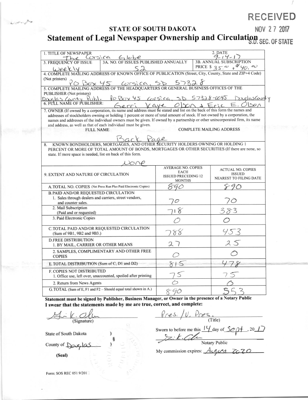 RECEIVED
NOV 27 2017
S.D. SEC. OF STATE
STATE OF SOUTH DAKOTA
Statement of Legal Newspaper Ownership and Circulation
1. TITLE OF NEWSPAPER
The Corsica Globe
2. DATE
9-14-17
3. FREQUENCY OF ISSUE
Weekly
3A. NO. OF ISSUES PUBLISHED ANNUALLY
52
3B. ANNUAL SUBSCRIPTION PRICE
4. COMPLETE MAILING ADDRESS OF KNOWN OFFICE OF PUBLICATION (Street, City, County, State and ZIP+4 Code) (Not printers)
PO Box 45 Corsica SD 57328
5. COMPLETE MAILING ADDRESS OF THE HEADQUARTERS OR GENERAL BUSINESS OFFICES OF THE PUBLISHER (Not printer)
6. FULL NAME OF PUBLISHER:
7. OWNER (If owned by a corporation, its name and address must be stated and also the names and addresses of stockholders owning or holding 1 percent or more of total amount of stock. If not owned by a corporation, the names and addresses of the individual owners must be given. If owned by a partnership or other unincorporated firm, its name and address, as well as that of each individual must be given.
FULL NAME
COMPLETE MAILING ADDRESS
Back Page
8. KNOWN BONDHOLDERS, MORTGAGES, AND OTHER SECURITY HOLDERS OWNING OR HOLDING 1 PERCENT OR MORE OF TOTAL AMOUNT OF BONDS, MORTGAGES OR OTHER SECURITIES (If there are none, so state. If more space is needed, list on back of this form.
None
9. EXTENT AND NATURE OF CIRCULATION
AVERAGE NO. COPIES EACH ISSUED PRECEDING 12 MONTHS
ACTUAL NO. COPIES ISSUED NEAREST TO FILING DATE
A. TOTAL NO. COPIES
890
890
B. PAID AND/OR REQUESTED CIRCULATION
1. Sales through dealers and carriers, street vendors, and counter sales.
70
70
2. Mail Subscription (Paid and or requested)
718
383
3. Paid Electronic Copies
0
0
C. TOTAL PAID AND/OR REQUESTED CIRCULATION (Sum of 9B1, 9B2 and 9B3.)
788
453
D. FREE DISTRIBUTION
1. BY MAIL, CARRIER OR OTHER MEANS
27
25
2. SAMPLES, COMPLIMENTARY AND OTHER FREE COPIES
0
0
E. TOTAL DISTRIBUTION (Sum of C, D1 and D2)
815
478
F. COPIES NOT DISTRIBUTED
1. Office use, left over, unaccounted, spoiled after printing
75
75
2. Return from News Agents
0
0
890
553
Statement must be signed by Publisher, Business Manager, or Owner in the presence of a Notary Public
I swear that the statements made by me are true, correct, and complete:
(Signature)
Pres / V. Pres.
(Title)
State of South Dakota )
County of Douglas )
(Seal)
Sworn to before me this 14 day of Sept, 2017
Notary Public
My commission expires August 2020